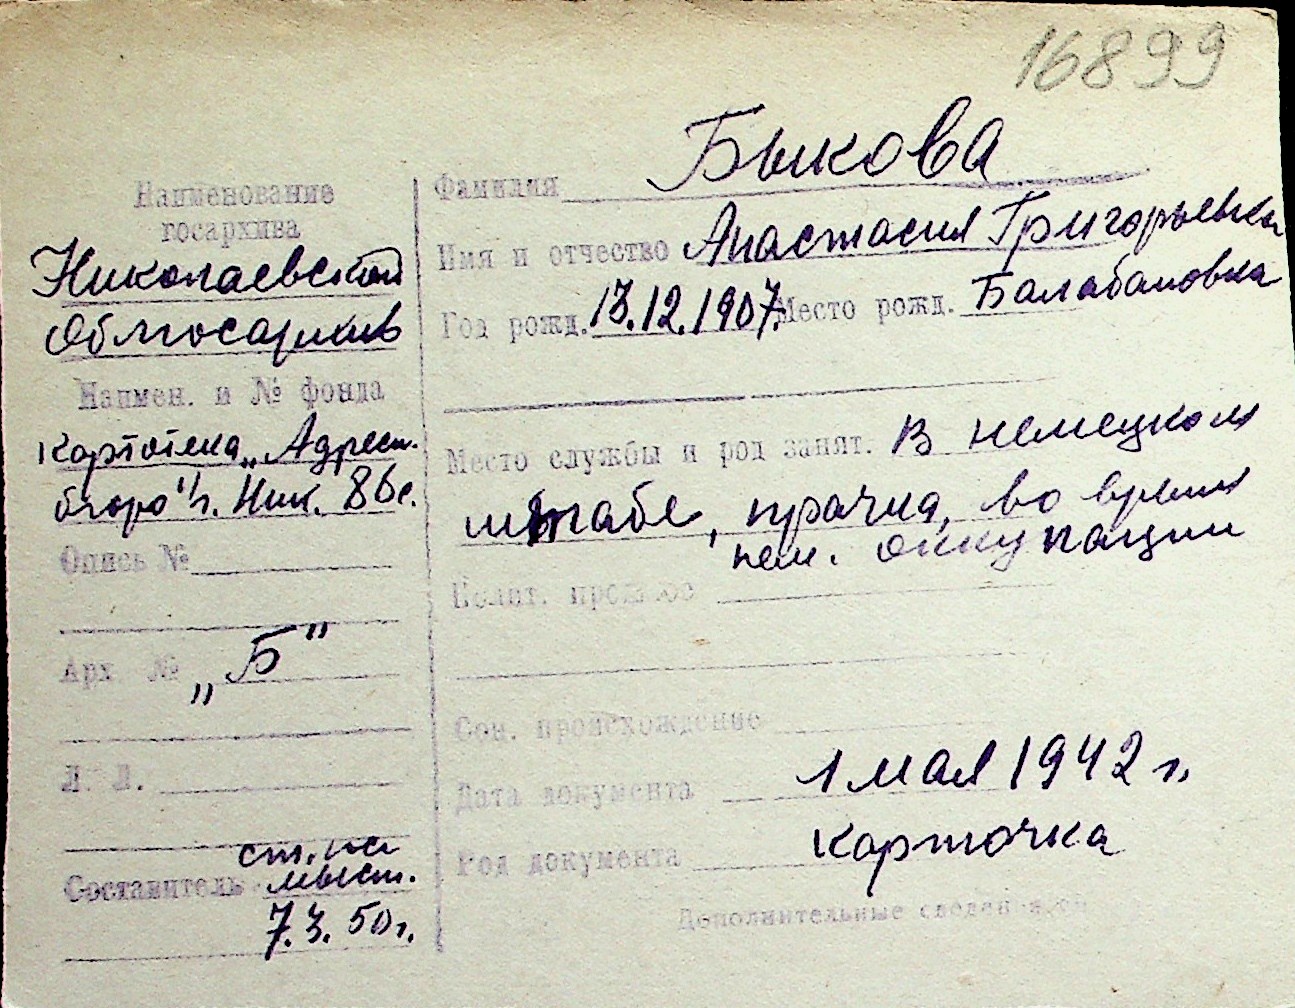 16899
Наименование
госархива
Николаевский
Облгосархив
Наимен. и № фонда
Картотека „Адресн.
бюро" г. Ник.
Опись №
Арх №
„Б"
Л. Л.
Составитель
7.3.50г.
Фамилия Быкова
Имя и отчество Анастасия Григорьевна
Год рожд. 13.12.1907 Место рожд. Балабановка
Место службы и род занят. В немецком
штабе, прачка, во время
нем. оккупации
Полит. прошлое
Соц. происхождение
Дата документа 1 мая 1942 г.
Род документа карточка
Дополнительные сведения